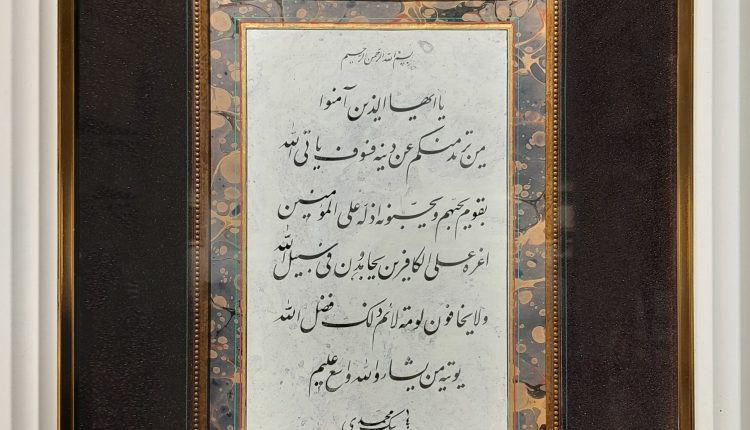 بسم الله الرحمن الرحیم
یا ایها الذین آمنوا
من یرتد منکم عن دینه فسوف یاتی الله
بقوم یحبهم و یحبونه اذلة علی المومنین
اعزة علی الکافرین یجاهدون فی سبیل الله
و لا یخافون لومة لائم ذلک فضل الله
یوتیه من یشاء والله واسع علیم
محمدی